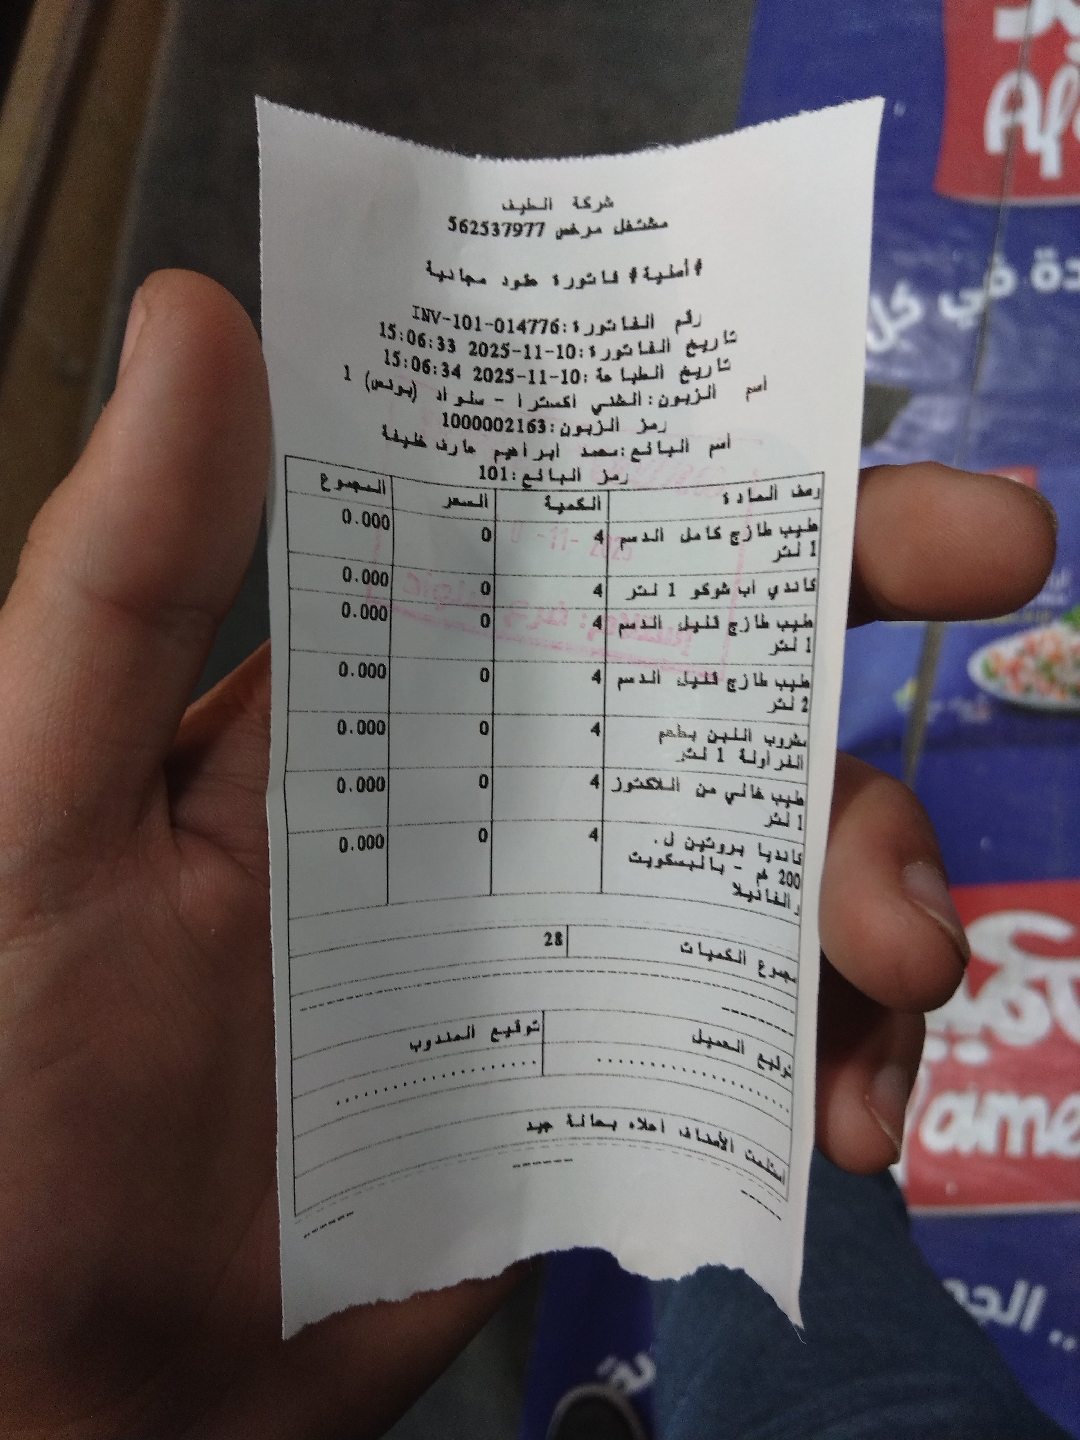 شركة الطيف
مشتغل مرخص 562537977
#أصلية# فاتورة عقود مجانية
رقم الفاتورة:INV-101-014776
تاريخ الفاتورة:10-11-2025 15:06:33
تاريخ الطباعة:10-11-2025 15:06:34
أسم الزبون:الشني اكسترا - سلواد (بونص) 1
رمز الزبون:1000002163
أسم البائع:محمد ابراهيم عارف خليفة
رمز البائع:101
وصف المادة الكمية السعر المجموع
حليب طازج كامل الدسم 4 0 0.000
1 لتر
كاندي أب شوكو 1 لتر 4 0 0.000
حليب طازج قليل الدسم 4 0 0.000
1 لتر
حليب طازج قليل الدسم 4 0 0.000
2 لتر
مشروب اللبن بطعم 4 0 0.000
الفراولة 1 لتر
حليب خالي من اللاكتوز 4 0 0.000
1 لتر
كانديا بروتين ل. 4 0 0.000
200 غم - بالبسكويت
والفانيلا
مجموع الكميات 28
توقيع العميل توقيع المندوب
أستلمت الأصناف أعلاه بحالة جيد
دة في كل
.. الجو